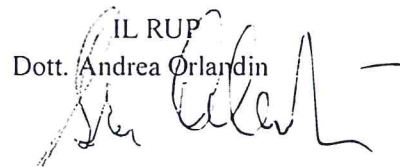 IL RUP
Dott. Andrea Orlandin